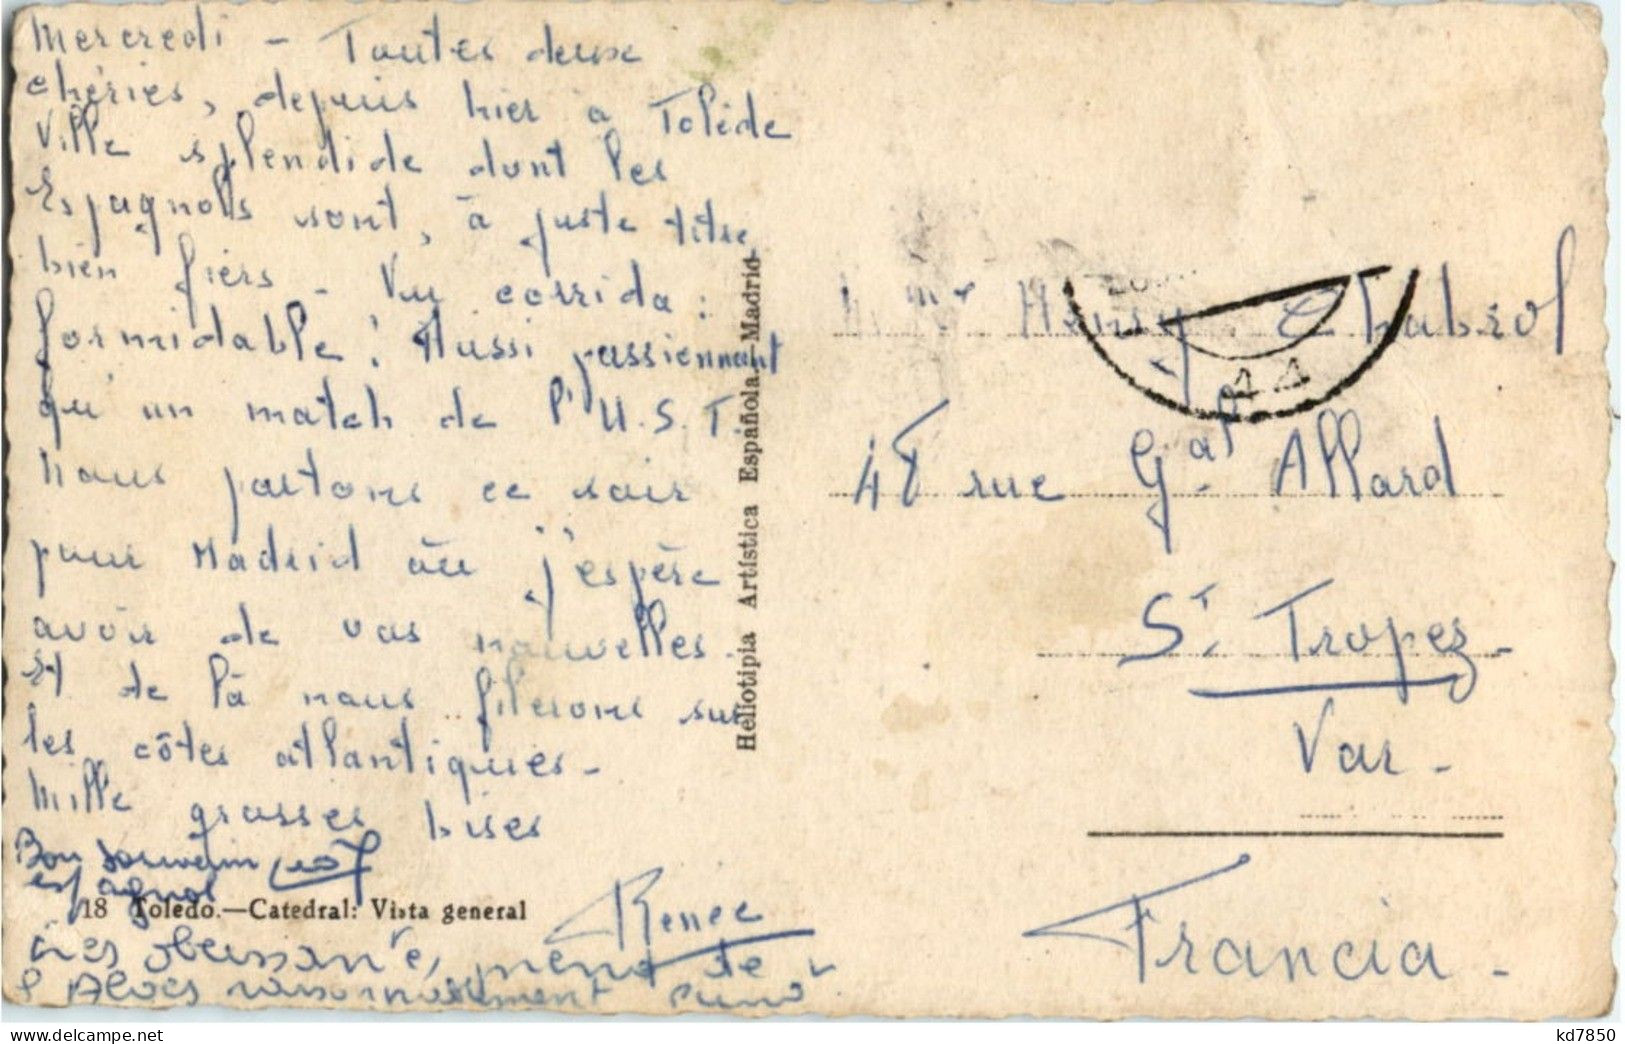 Mercredi - Toutes deux
chéries, depuis hier à Tolède
Ville splendide dont les
Espagnols sont, à juste titre
bien fiers - Vu corrida :
formidable ! Aussi passionnant
qu'un match de l'U.S.T.
Nous partons ce soir
pour Madrid où j'espère
avoir de vos nouvelles -
Et de là nous filerons sur
les côtes atlantiques -
Mille grosses bises
Bon souvenir
espagnol
Renée
18 Toledo.—Catedral: Vista general
Heliotipia Artística Española.—Madrid
Henry Chabrol
rue Gal Allard
St. Tropez -
Var -
Francia -
kd7850